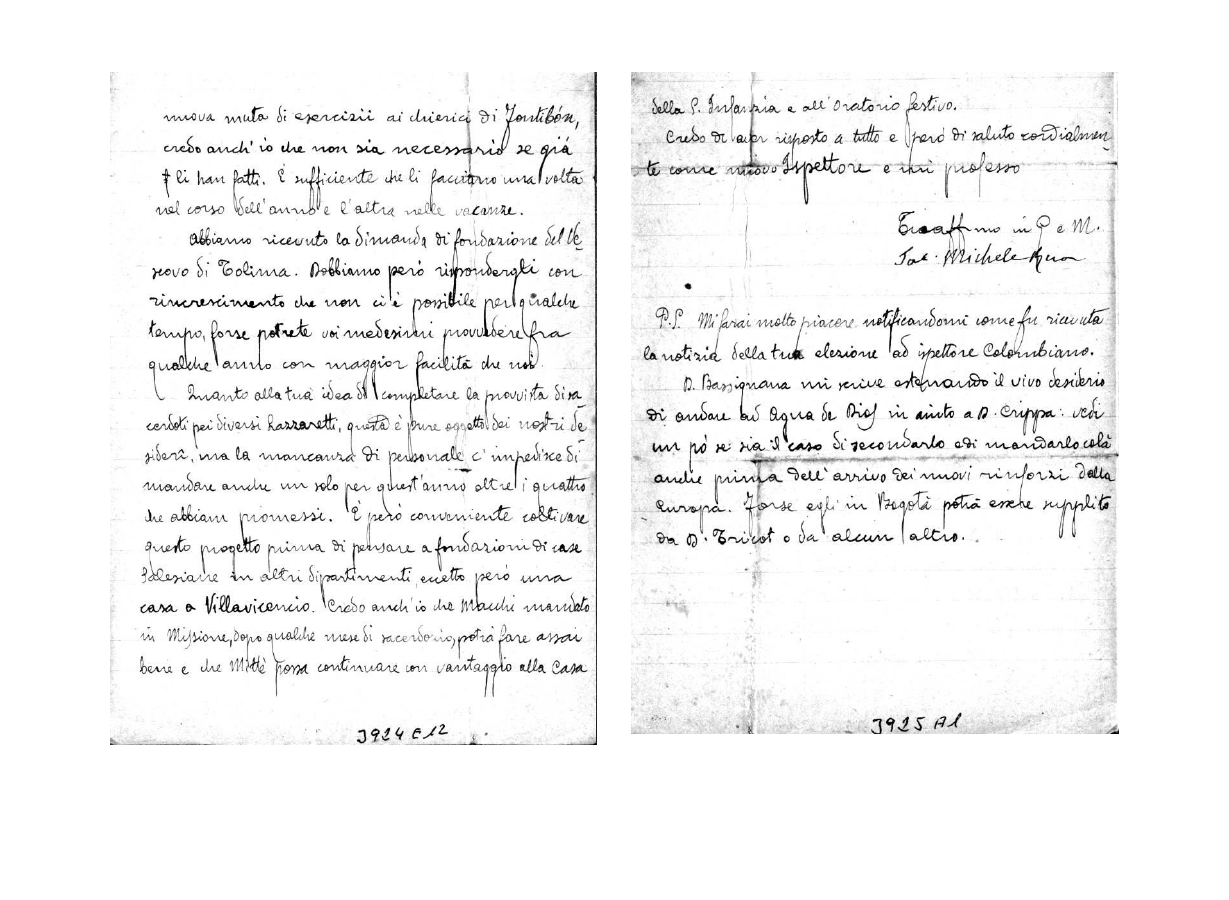 nuova muta di esercizii ai chierici di Fontibón,
credo anch'io che non sia necessario se già
li han fatti. È sufficiente che li facciano una volta
nel corso dell'anno e l'altra nelle vacanze.
Abbiamo ricevuto la dimanda di fondazione del Ve-
scovo di Tolima. Dobbiamo però rispondergli con
rincrescimento che non ci è possibile per qualche
tempo, forse potrete voi medesimi provvedere fra
qualche anno con maggior facilità che noi.
Quanto alla tua idea di completare la provvista di sa-
cerdoti pei diversi Lazzaretti, questa è pure oggetto dei nostri de-
siderî, ma la mancanza di personale c'impedisce di
mandare anche un solo per quest'anno oltre i quattro
che abbiam promessi. È però conveniente coltivare
questo progetto prima di pensare a fondazioni di case
Salesiane in altri dipartimenti, eccetto però una
casa a Villavicencio. Credo anch'io che Macchi mandato
in Missione, dopo qualche mese di sacerdozio, potrà fare assai
bene e che possa continuare con vantaggio alla Casa
3924 E12
della S. Infanzia e all'Oratorio festivo.
Credo di aver risposto a tutto e però di saluto cordialmen-
te come nuovo Ispettore e mi professo
Tuoaffmo in G e M.
Sac. Michele Rua
P.S. Mi farai molto piacere notificandomi come fu ricevuta
la notizia della tua elezione ad ispettore Colombiano.
D. Bassignana mi scrive esternando il vivo desiderio
di andare ad Agua de Dios in aiuto a D. Crippa: vedi
un pò se sia il caso di secondarlo e di mandarlo colà
anche prima dell'arrivo dei nuovi rinforzi dalla
Europa. Forse egli in Bogotà potrà essere supplito
da D. Tricot o da alcun altro.
3925 A1